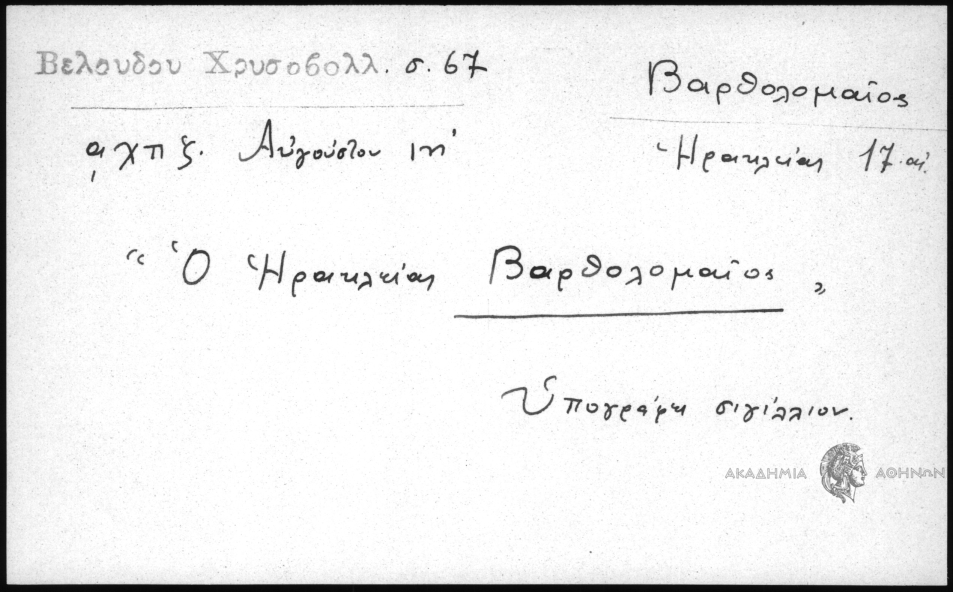 Βελουδου Χρυσοβολλ. σ. 67
Βαρθολομαῖος
Ἡρακλείας 17. αἰ.
͵αχπζ. Αὐγούστου ιη'
“ Ὁ Ἡρακλείας Βαρθολομαῖος „
Ὑπογράφει σιγίλλιον.
ΑΚΑΔΗΜΙΑ ΑΘΗΝΩΝ